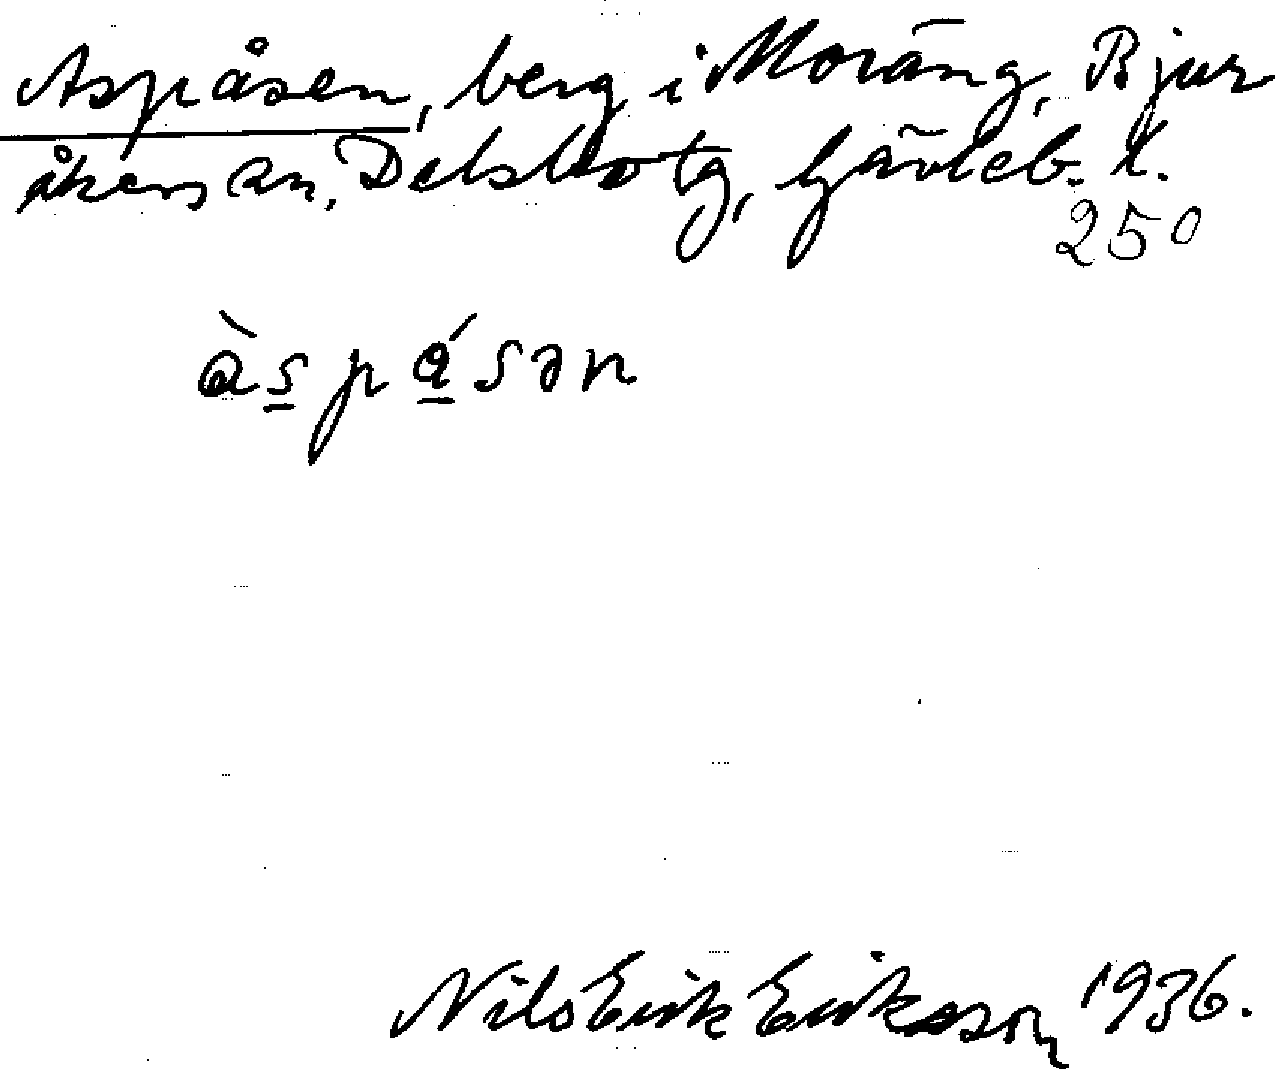 Aspåsen, berg i Moräng, Bjur
åkers sn, Delsbo tg, Gävleb. l.
250
àspásən
Nils Erik Eriksson 1936.